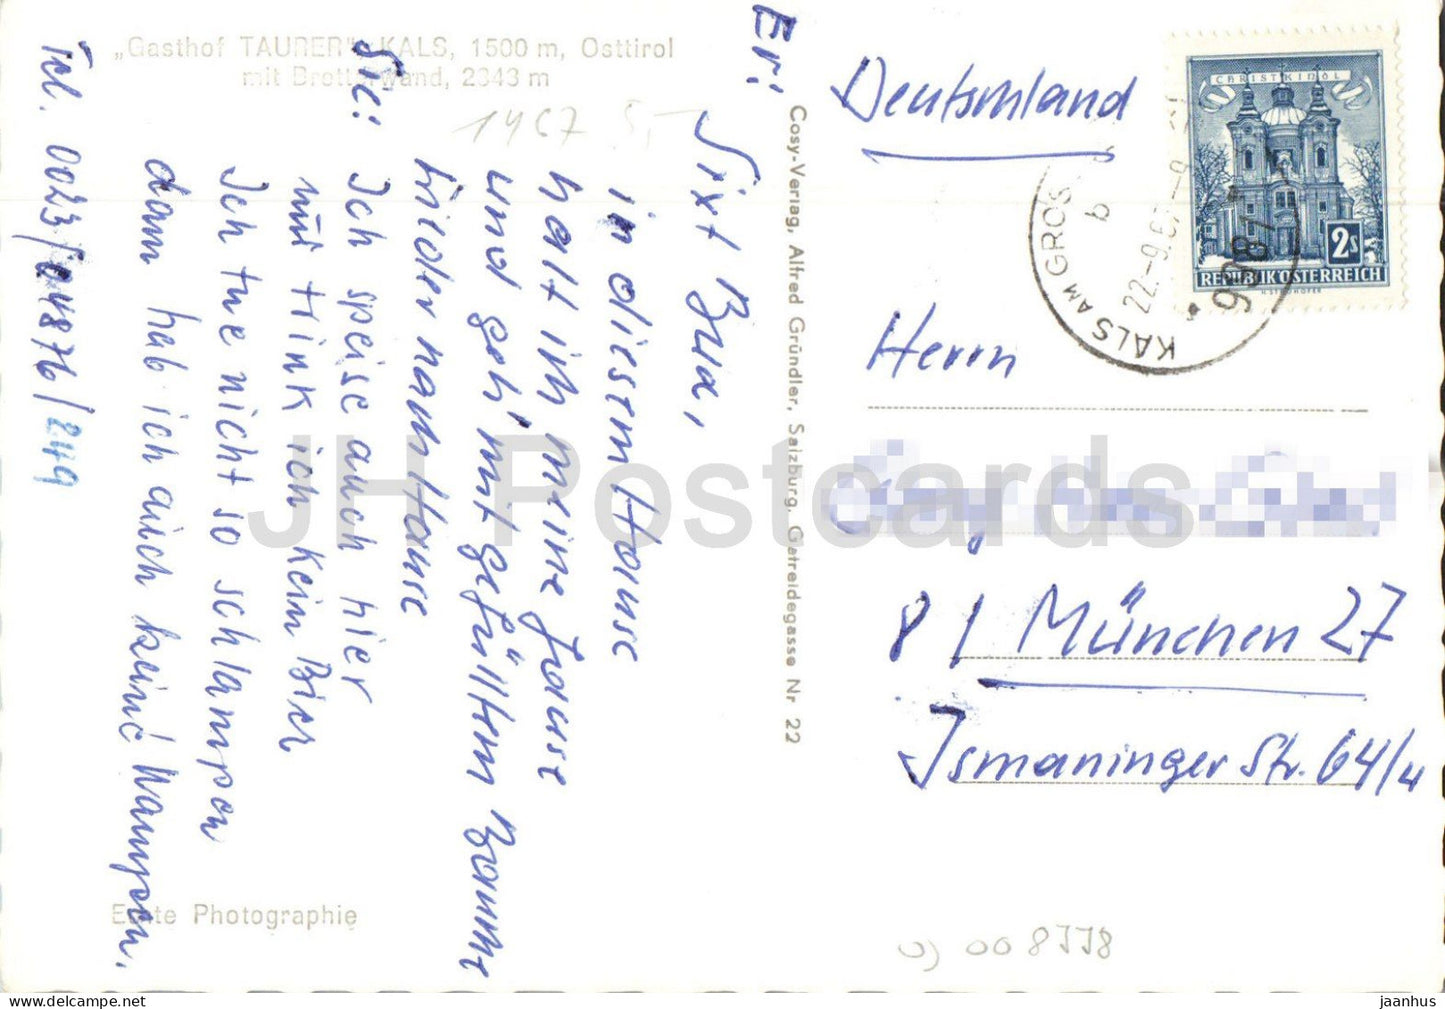 „Gasthof TAURER", KALS, 1500 m, Osttirol
mit Brotterwand, 2343 m
1967 5,-
Er:
Sixt Bua,
in diesem Hause
halt ich meine Jause
und geh' mit gefülltem Bamme
wieder nach Hause
Sie:
Ich speise auch hier
nur trink ich kein Bier
Ich tue nicht so schlampen
dann hab ich auch keine Wampen.
Tel. 0023/04876/249
Echte Photographie
Cosy-Verlag, Alfred Gründler, Salzburg, Getreidegasse Nr. 22
Deutschland
CHRISTKINDL
2s
REPUBLIK ÖSTERREICH
H. STROHOFER
KALS AM GROS
b
22.-9.67-9
9981
Herrn
81 München 27
Ismaninger Str. 64/4
008118
JH Postcards
jaanhus